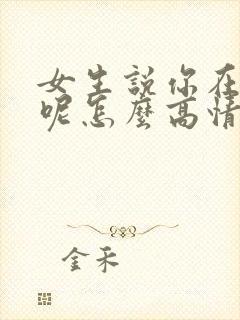 女生説你在
呢怎麽高情
金禾